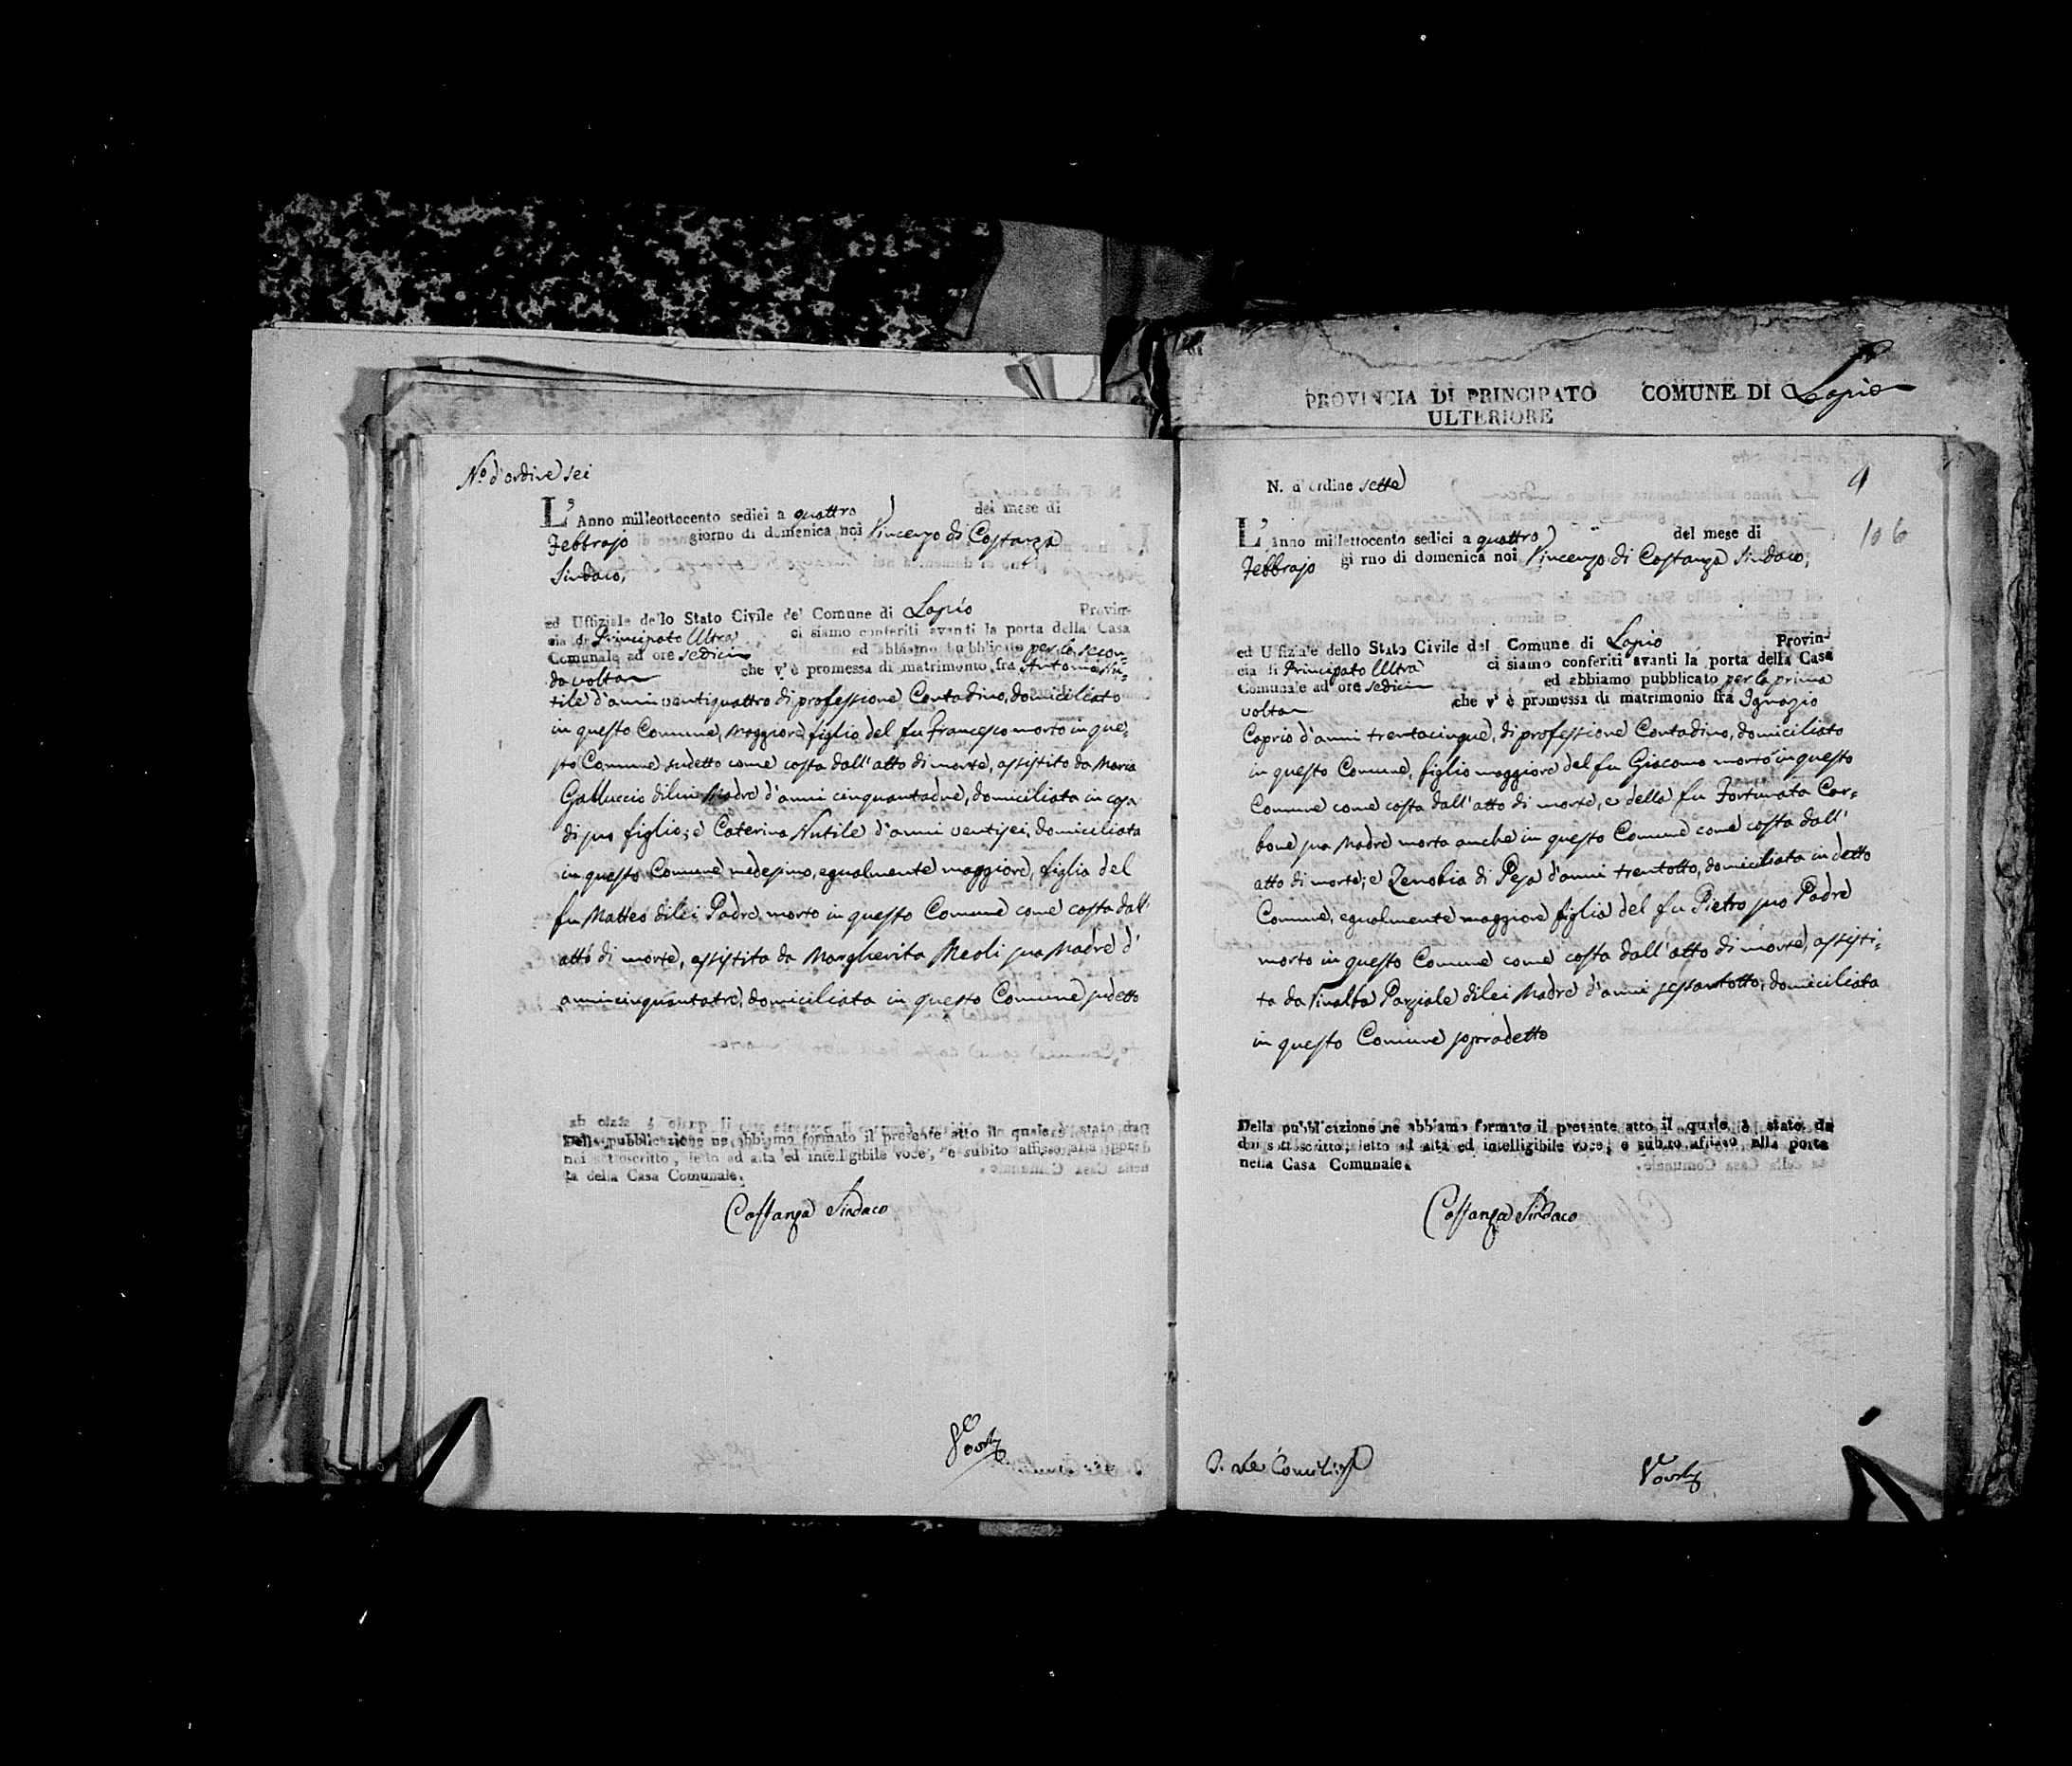 N.º d'ordine sei
L'Anno milleottocento sedici a quattro del mese di
Febbrajo giorno di domenica noi Vincenzo di Costanza
Sindaco,
ed Uffiziale dello Stato Civile del Comune di Lapio Provin-
cia di Principato Ultra ci siamo conferiti avanti la porta della Casa
Comunale ad ore sedici ed abbiamo pubblicato per la secon-
da volta che v'è promessa di matrimonio fra Antonio Nu-
tile d'anni ventiquattro di professione Contadino, domiciliato
in questo Comune, maggiore figlio del fu Francesco morto in que-
sto Comune sudetto come costa dall'atto di morte, assistito da Maria
Galluccio di lui Madre d'anni cinquantadue, domiciliata in casa
di suo figlio; e Caterina Nutile d'anni ventisei, domiciliata
in questo Comune medesimo, egualmente maggiore, figlia del
fu Matteo di lei Padre, morto in questo Comune come costa dall'
atto di morte, assistita da Margherita Meoli sua Madre d'
anni cinquantatre, domiciliata in questo Comune sudetto
Della pubblicazione ne abbiamo formato il presente atto il quale è stato da
noi sottoscritto, letto ad alta ed intelligibile voce, e subito affisso alla por-
ta della Casa Comunale.
Costanza Sindaco
PROVINCIA DI PRINCIPATO COMUNE DI Lapio
ULTERIORE
N. d'ordine sette 4
106
L'Anno millettocento sedici a quattro del mese di
Febbrajo gi rno di domenica noi Vincenzo di Costanza Sindaco,
ed Uffiziale dello Stato Civile del Comune di Lapio Provin-
cia di Principato Ultra ci siamo conferiti avanti la porta della Casa
Comunale ad ore sedici ed abbiamo pubblicato per la prima
volta che v'è promessa di matrimonio fra Ignazio
Caprio d'anni trentacinque, di professione Contadino, domiciliato
in questo Comune, figlio maggiore del fu Giacomo morto in questo
Comune come costa dall'atto di morte, e della fu Fortunata Car-
bone sua Madre morta anche in questo Comune come costa dall'
atto di morte; e Zenobia di Pesa d'anni trentotto, domiciliata in detto
Comune, egualmente maggiore figlia del fu Pietro suo Padre
morto in questo Comune come costa dall'atto di morte, assisti-
ta da Vinalba Parziale di lei Madre d'anni sessantotto, domiciliata
in questo Comune sopradetto
Della pubblicizione ne abbiamo formato il presente atto il quale è stato da
dai sottoscritto, letto ad alta ed intelligibile voce; e subito affisso alla porta
nella Casa Comunale.
Costanza Sindaco